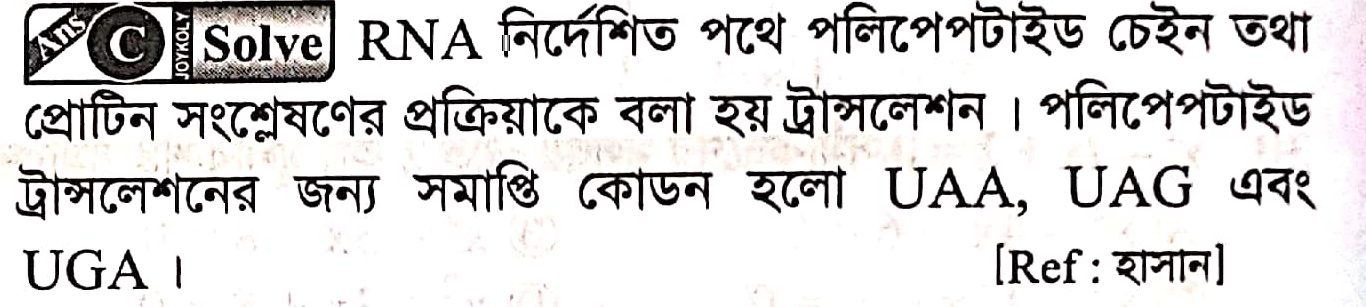 Ans C JOYKOLY Solve RNA নির্দেশিত পথে পলিপেপটাইড চেইন তথা
প্রোটিন সংশ্লেষণের প্রক্রিয়াকে বলা হয় ট্রান্সলেশন । পলিপেপটাইড
ট্রান্সলেশনের জন্য সমাপ্তি কোডন হলো UAA, UAG এবং
UGA । [Ref : হাসান]